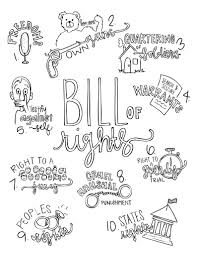 1
FREEDOMS
2
own guns
3
QUARTERING
soldiers
4
WARRANTS
5
testify
against
self
BILL OF
rights
6
RIGHT TO
TRIAL
7
RIGHT TO A
8
CRUEL
UNUSUAL
PUNISHMENT
9
PEOPLES
rights
10
STATES
rights